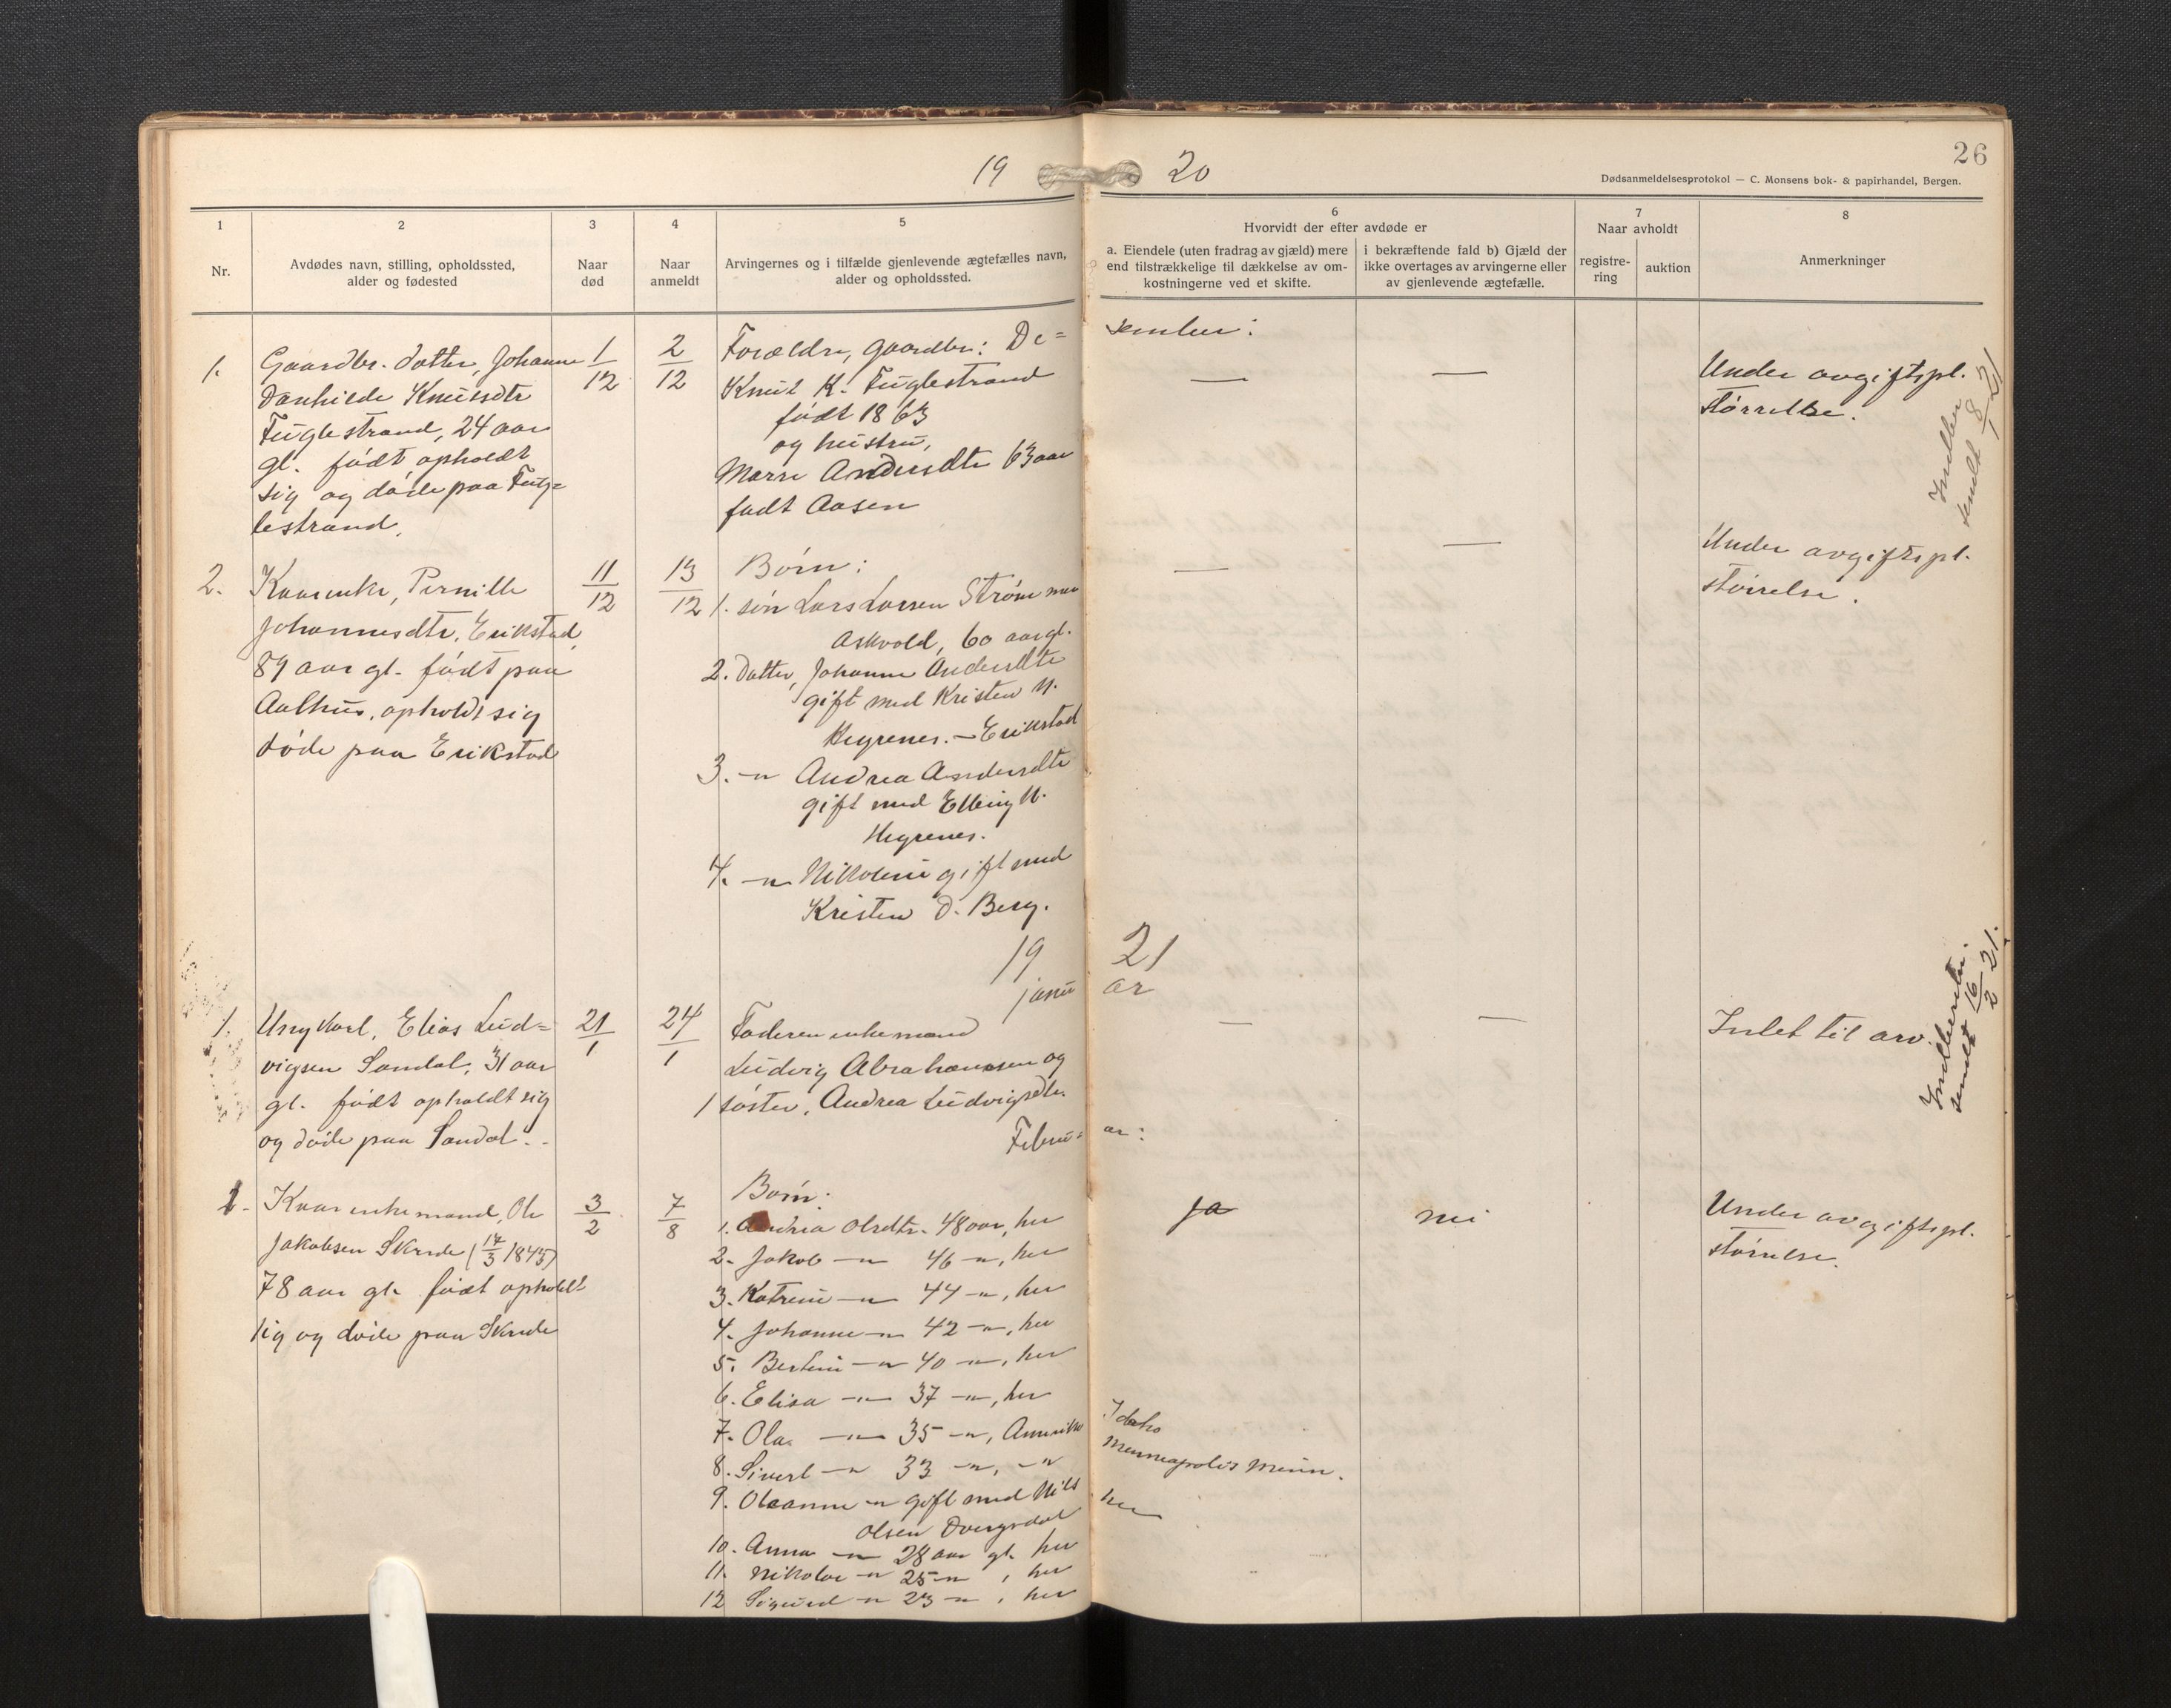 19 20
26
Dødsanmeldelsesprotokol — C. Monsens bok- & papirhandel, Bergen.
1
Nr.
2
Avdødes navn, stilling, opholdssted,
alder og fødested
3
Naar
død
4
Naar
anmeldt
5
Arvingernes og i tilfælde gjenlevende ægtefælles navn,
alder og opholdssted.
6
Hvorvidt der efter avdøde er
a. Eiendele (uten fradrag av gjæld) mere
end tilstrækkelige til dækkelse av om-
kostningerne ved et skifte.
i bekræftende fald b) Gjæld der
ikke overtages av arvingerne eller
av gjenlevende ægtefælle.
7
Naar avholdt
registre-
ring
auktion
8
Anmerkninger
De= sember:
1.
Gaardbr. datter, Johanne
Danhilde Knutsdtr
Fuglestrand, 24 aar
gl. født opholdt
sig og døde paa Fug=
lestrand.
1/12
2/12
Forældre, gaardbr:
Knut K. Fuglestrand
født 1863
og hustru,
Marie Andersdtr 63 aar
født Aasen
—
—
Under avgiftspl.
størrelse.
Indber.
sendt 8/1 21
2.
Kaarenke, Pernille
Johannesdtr. Erikstad,
89 aar gl. født paa
Aalhus, opholdt sig
døde paa Erikstad
11/12
13/12
Børn:
1. søn Lars Larsen Strømmen
Askvold, 60 aar gl.
2. Datter, Johanne Andersdtr
gift med Kristen N.
Hegrenes. — Erikstad
3. —"— Andrea Andersdtr
gift med Elling N.
Hegrenes.
4. —"— Nikoline gift med
Kristen D. Berg.
—
—
Under avgiftspl.
størrelse.
19 21
januar
1.
Ungkarl, Elias Lud=
vigsen Sandal, 31 aar
gl. født opholdt sig
og døde paa Sandal.
21/1
24/1
Faderen enkemand
Ludvig Abrahamsen og
1 søster, Andrea Ludvigsdtr.
—
—
Intet til arv.
Indberetn.
sendt 16/2 21.
Febru= ar:
1.
Kaarenkemand, Ole
Jakobsen Skrede (17/3 1843)
78 aar gl. født opholdt
sig og døde paa Skrede
3/2
7/8
Børn:
1. Andrea Olsdtr. 48 aar, her
2. Jakob —"— 46 —"—, her
3. Katrine —"— 44 —"—, her
4. Johanne —"— 42 —"—, her
5. Bertine —"— 40 —"—, her
6. Elisa —"— 37 —"—, her
7. Ola —"— 35 —"—, Amerika Idaho
8. Sivert —"— 33 —"—, —"— Menneapolis Minn.
9. Oleanne —"— gift med Nils
Olsen Dvergsdal her
10. Anna —"— 28 aar gl. her
11. Nikolai —"— 25 —"—, her
12 Sigurd —"— 23 —"—, her
ja
nei
Under avgiftspl.
størrelse.